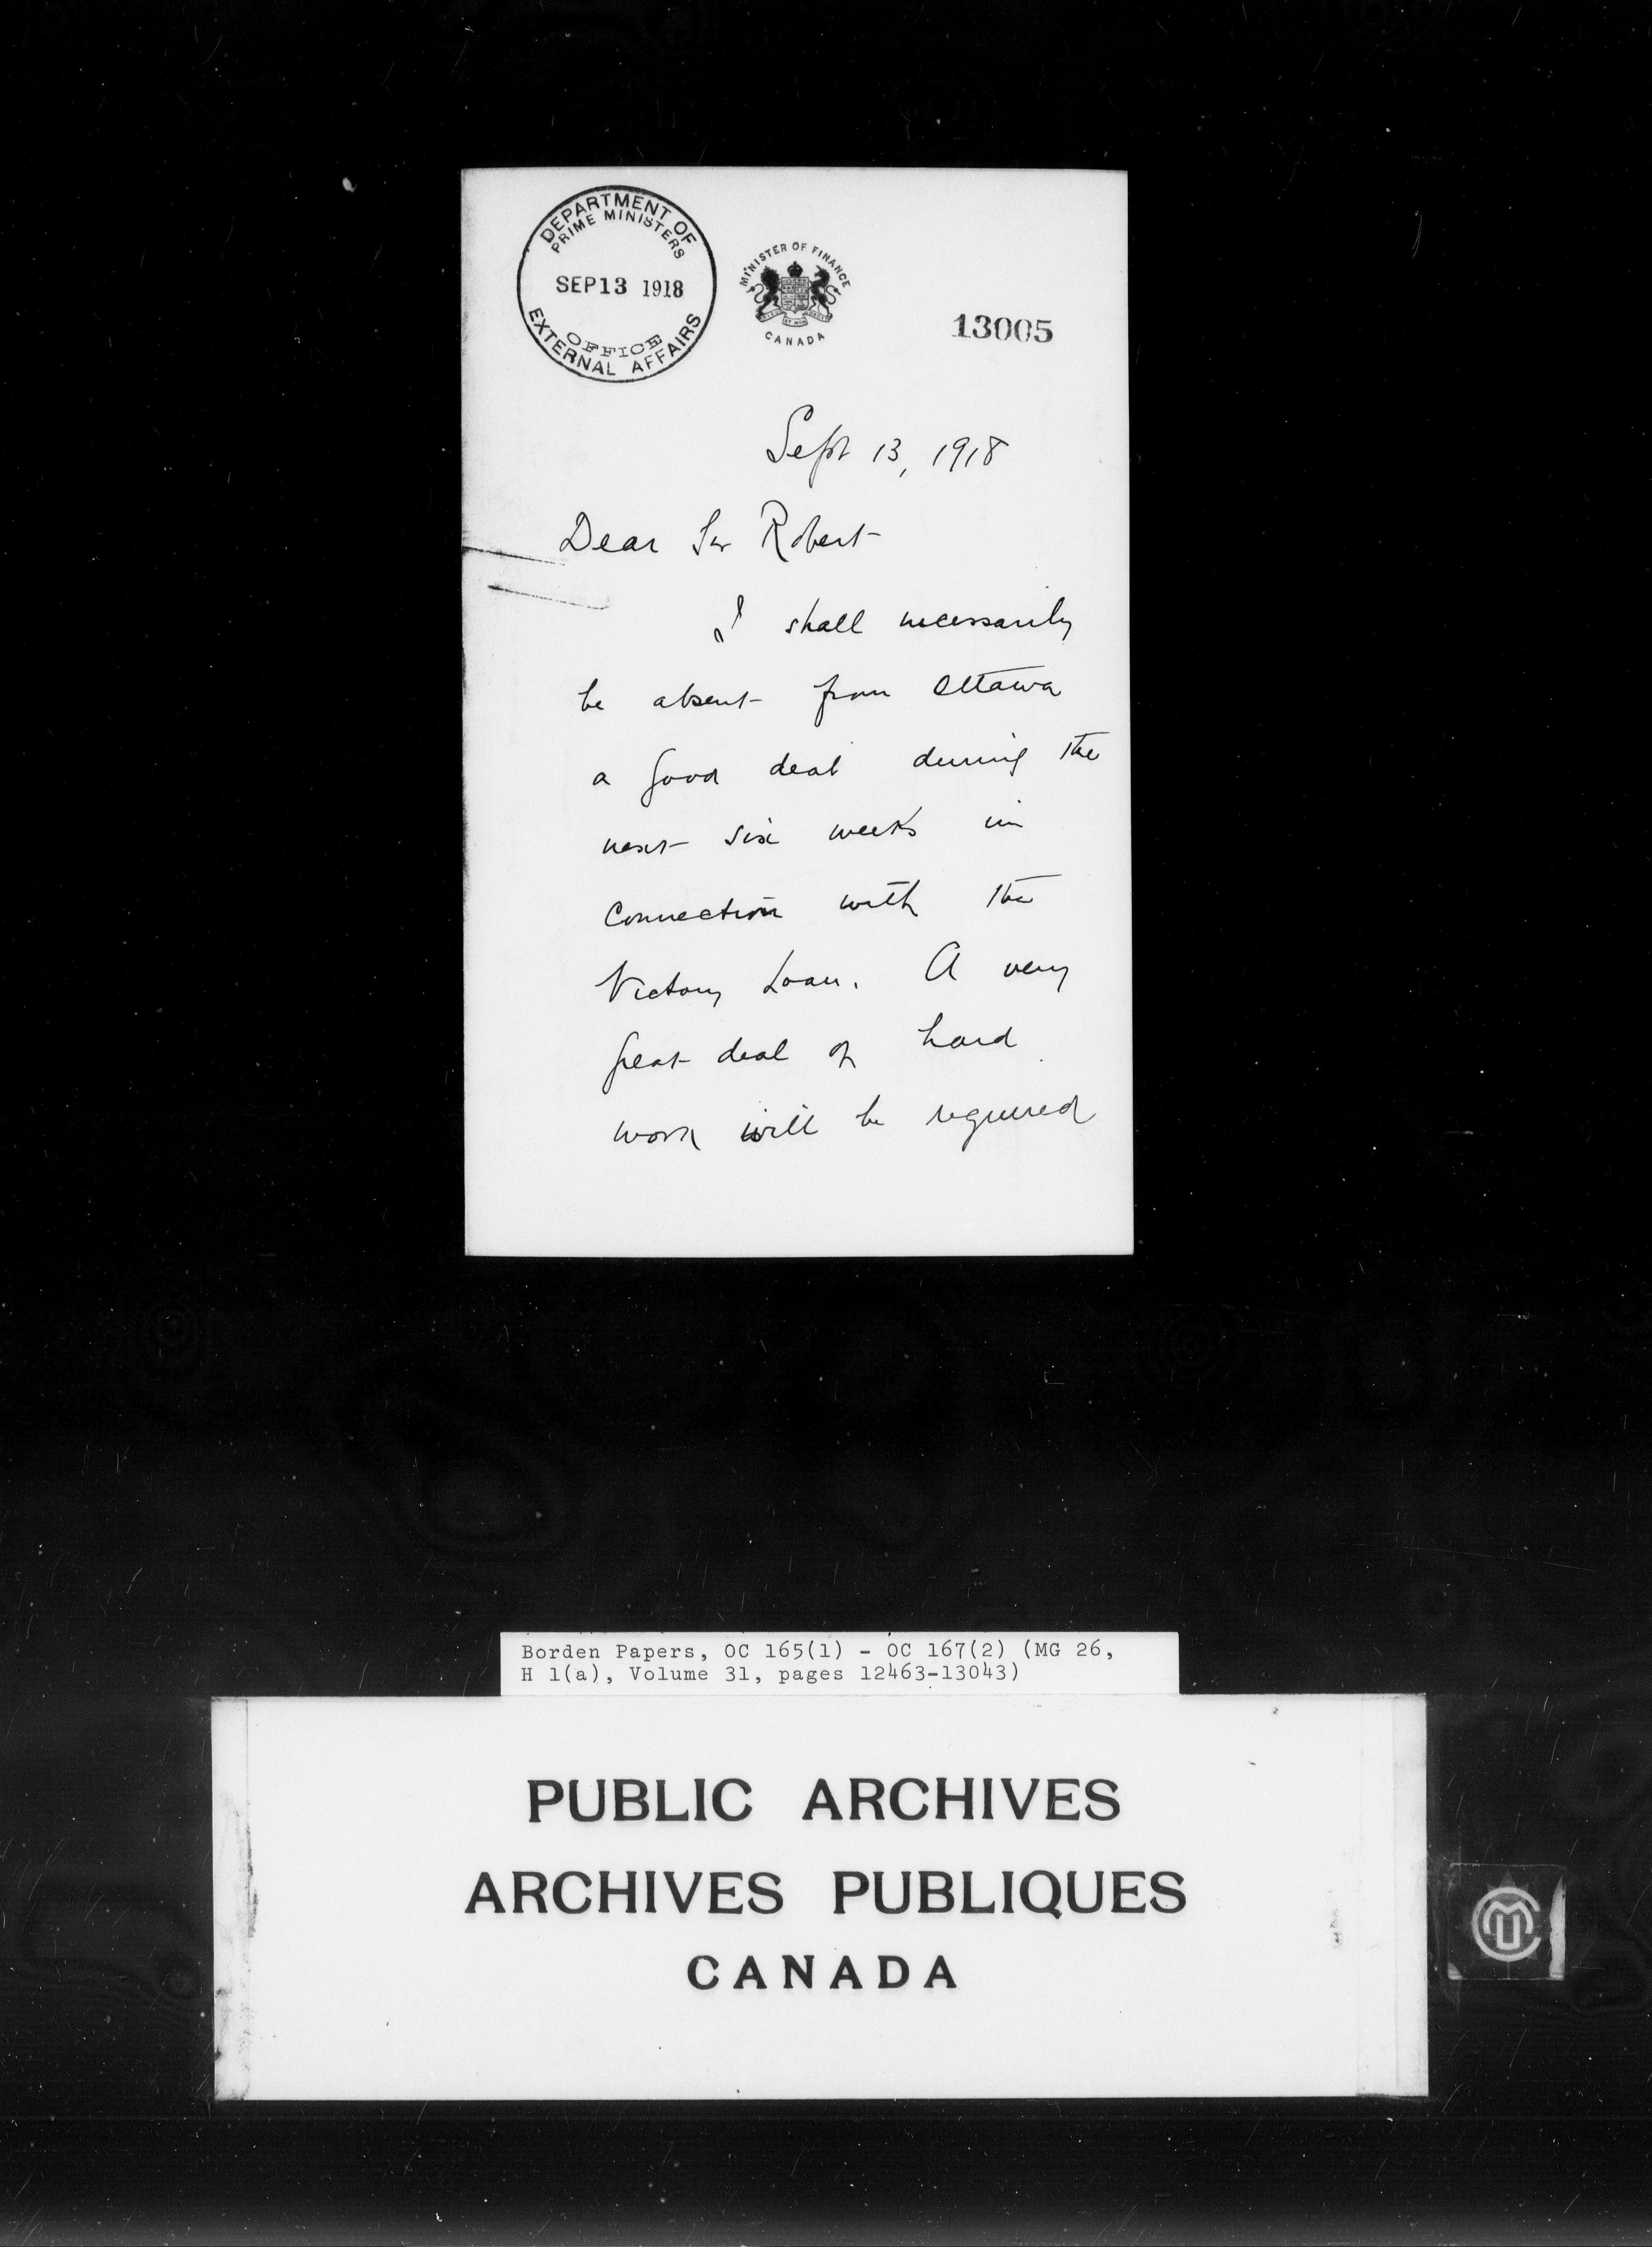 DEPARTMENT OF
PRIME MINISTERS
SEP 13 1918
OFFICE
EXTERNAL AFFAIRS
MINISTER OF FINANCE
CANADA
13005
Sept 13, 1918
Dear Sir Robert
I shall necessarily
be absent from Ottawa
a good deal during the
next six weeks in
connection with the
Victory Loan. A very
great deal of hard
work will be required
Borden Papers, OC 165(1) - OC 167(2) (MG 26,
H 1(a), Volume 31, pages 12463-13043)
PUBLIC ARCHIVES
ARCHIVES PUBLIQUES
CANADA